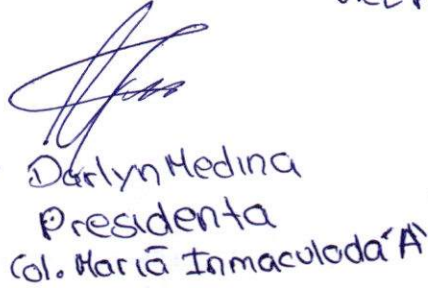 Darlyn Medina
Presidenta
Col. Mariā Inmaculada "A"